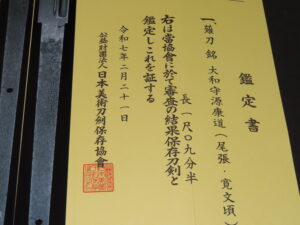 鑑定書
一、薙刀 銘 大和守源康道(尾張・寛文頃)
長一尺〇九分半
右は当協會に於て審査の結果保存刀剣と
鑑定しこれを証する
令和七年二月二十一日
公益財団法人日本美術刀剣保存協會